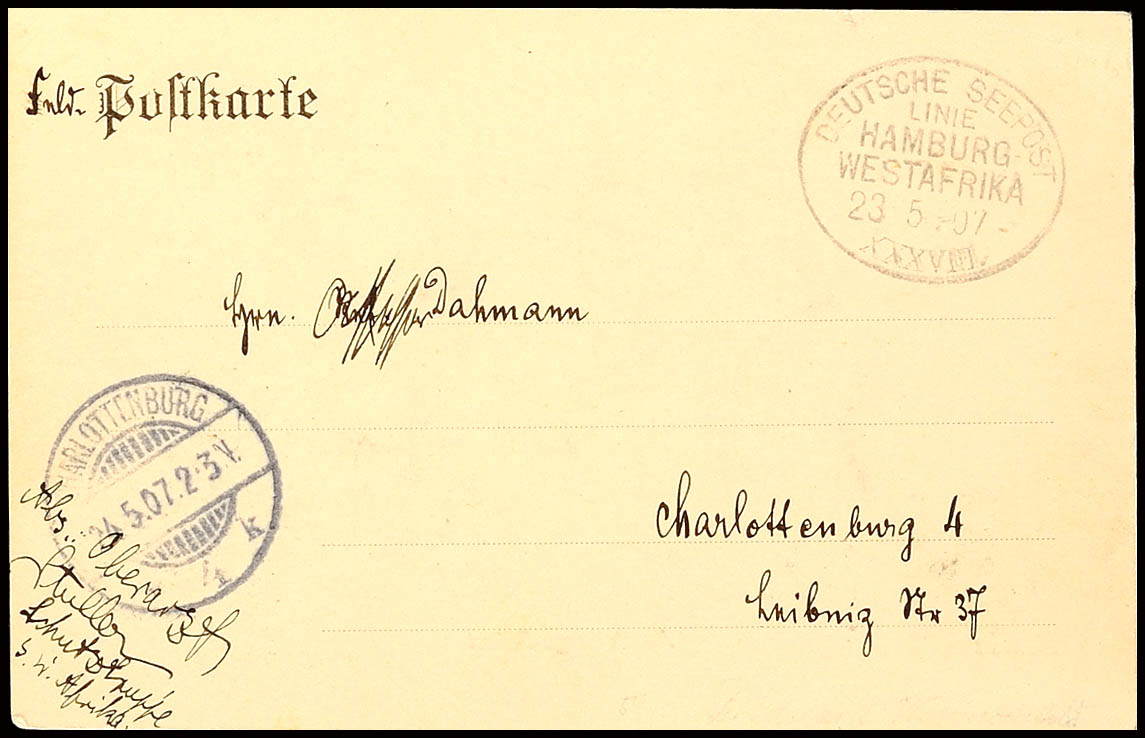 Feld- Postkarte
DEUTSCHE SEEPOST
LINIE
HAMBURG-
WESTAFRIKA
23 5 07
XXXVIII
Hrn. Dahmann
CHARLOTTENBURG
24.5.07.2-3V.
k
Charlottenburg 4
Leibniz Str 37
Abs.: Oberarzt
Schutztruppe
S. W. Afrika.